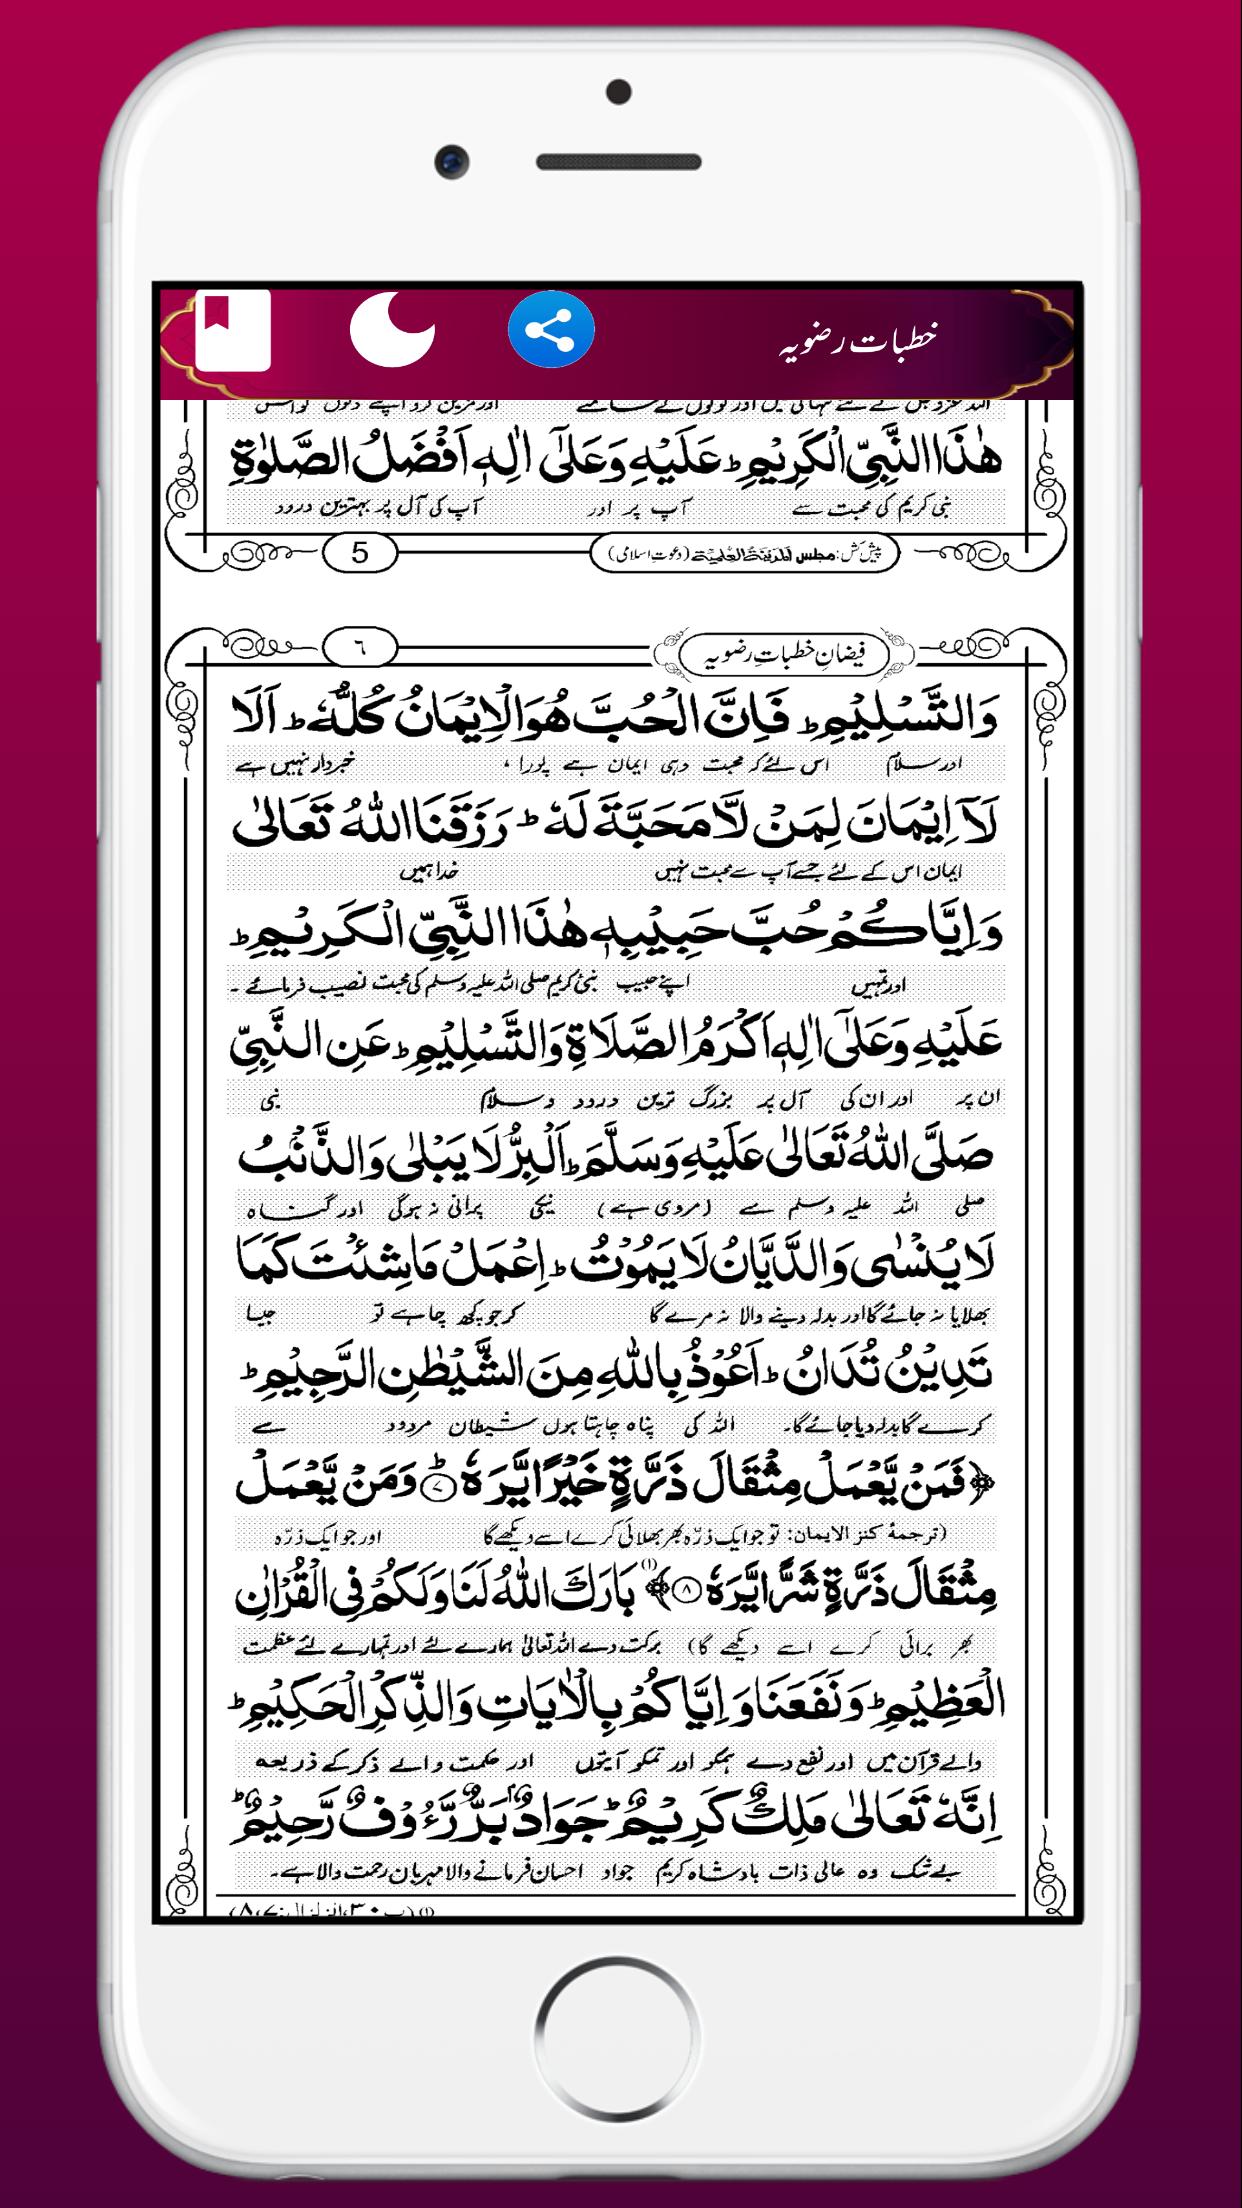 خطبات رضویہ
هٰذَا النَّبِیِّ الْكَرِیْمِ ؕ عَلَیْهِ وَعَلٰۤی اٰلِهٖ اَفْضَلُ الصَّلٰوةِ
نبی کریم کی محبت سے آپ پر اور آپ کی آل پر بہترین درود
پیش کش: مجلس المدینۃ العلمیۃ (دعوتِ اسلامی) 5
فیضانِ خطباتِ رضویہ ٦
وَالتَّسْلِیْمِ ؕ فَاِنَّ الْحُبَّ هُوَ الْاِیْمَانُ كُلُّهٗ ؕ اَلَا
اور سلام اس لئے کہ محبت وہی ایمان ہے پورا ، خبردار نہیں ہے
لَاۤ اِیْمَانَ لِمَنْ لَّا مَحَبَّةَ لَهٗ ؕ رَزَقَنَا اللّٰهُ تَعَالٰی
ایمان اس کے لئے جسے آپ سے محبت نہیں خدا ہمیں
وَاِیَّاكُمْ حُبَّ حَبِیْبِهٖ هٰذَا النَّبِیِّ الْكَرِیْمِ ؕ
اور تمہیں اپنے حبیب نبیٔ کریم صلی اللہ علیہ وسلم کی محبت نصیب فرمائے ۔
عَلَیْهِ وَعَلٰۤی اٰلِهٖ اَكْرَمُ الصَّلَاةِ وَالتَّسْلِیْمِ ؕ عَنِ النَّبِیِّ
ان پر اور ان کی آل پر بزرگ ترین درود و سلام نبی
صَلَّی اللّٰهُ تَعَالٰی عَلَیْهِ وَسَلَّمَ ؕ اَلْبِرُّ لَا یَبْلٰی وَالذَّنْۢبُ
صلی اللہ علیہ وسلم سے (مروی ہے) نیکی پرانی نہ ہوگی اور گناہ
لَا یُنْسٰی وَالدَّیَّانُ لَا یَمُوْتُ ؕ اِعْمَلْ مَا شِئْتَ كَمَا
بھلایا نہ جائے گا اور بدلہ دینے والا نہ مرے گا کر جو کچھ چاہے تو جیسا
تَدِیْنُ تُدَانُ ؕ اَعُوْذُ بِاللّٰهِ مِنَ الشَّیْطٰنِ الرَّجِیْمِ ؕ
کرے گا بدلہ دیا جائے گا۔ اللہ کی پناہ چاہتا ہوں شیطان مردود سے
﴿فَمَنْ یَّعْمَلْ مِثْقَالَ ذَرَّةٍ خَیْرًا یَّرَهٗ ؕ۷ وَمَنْ یَّعْمَلْ
(ترجمۂ کنز الایمان: تو جو ایک ذرّہ بھر بھلائی کرے اسے دیکھے گا اور جو ایک ذرّہ
مِثْقَالَ ذَرَّةٍ شَرًّا یَّرَهٗ ۸﴾(۱) بَارَكَ اللّٰهُ لَنَا وَلَكُمْ فِی الْقُرْاٰنِ
بھر برائی کرے اسے دیکھے گا) برکت دے اللہ تعالیٰ ہمارے لئے اور تمہارے لئے عظمت
الْعَظِیْمِ ؕ وَنَفَعَنَا وَاِیَّاكُمْ بِالْاٰیَاتِ وَالذِّكْرِ الْحَكِیْمِ ؕ
والے قرآن میں اور نفع دے ہمکو اور تمکو آیتوں اور حکمت والے ذکر کے ذریعہ
اِنَّهٗ تَعَالٰی مَلِكٌ كَرِیْمٌ ؕ جَوَادٌۢ بَرٌّ رَّءُوْفٌ رَّحِیْمٌ ؕ
بے شک وہ عالی ذات بادشاہ کریم جواد احسان فرمانے والا مہربان رحمت والا ہے۔